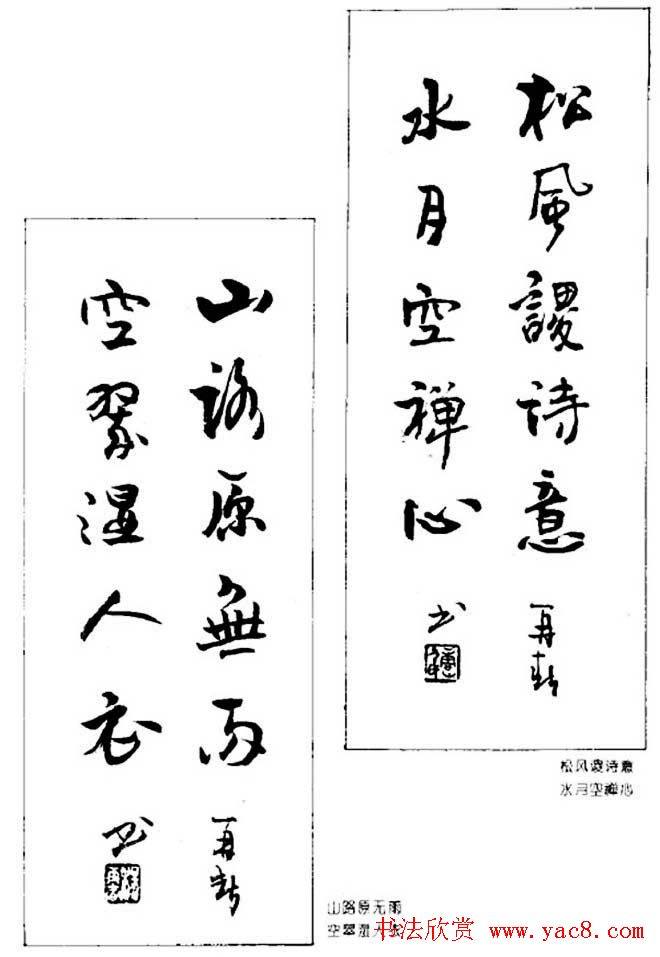 松風謖詩意
水月空禅心
再新
书
山路原無雨
空翠湿人衣
再新
书
松风谡诗意
水月空禅心
山路原无雨
空翠湿人衣
书法欣赏 www.yac8.com